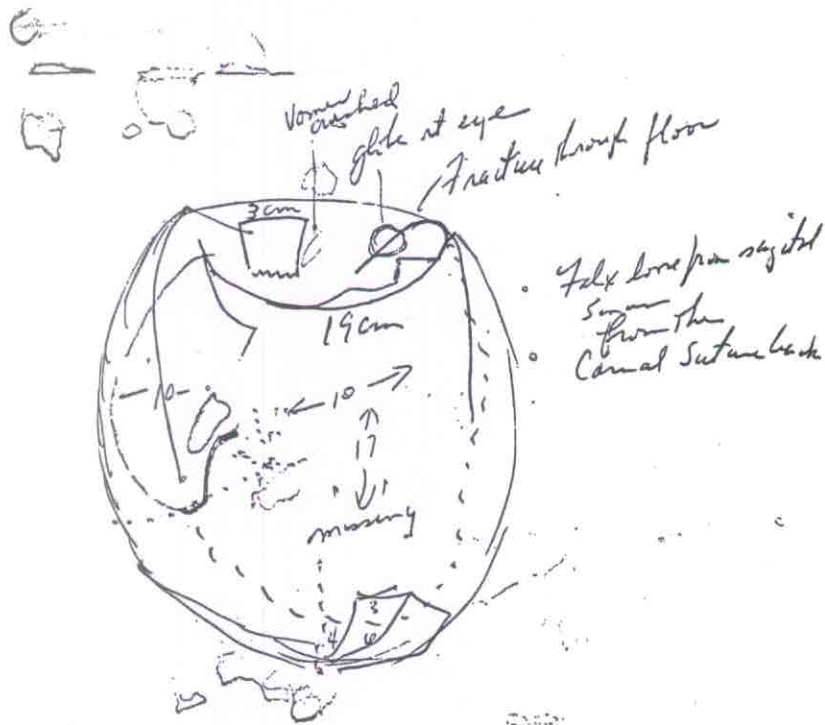 Vomer
crushed
globe rt eye
Fracture through floor
3 cm
19 cm
Falx loose from sagital
from the
Coronal Suture back
10
10
17
missing
3
4
6